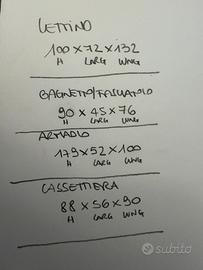 LETTINO
100x72x132
H LARG LUNG
BAGNETTO/FASCIATOIO
90x45x76
H LARG LUNG
ARMADIO
179x52x100
H LARG LUNG
CASSETTIERA
88x56x90
H LARG LUNG
subito